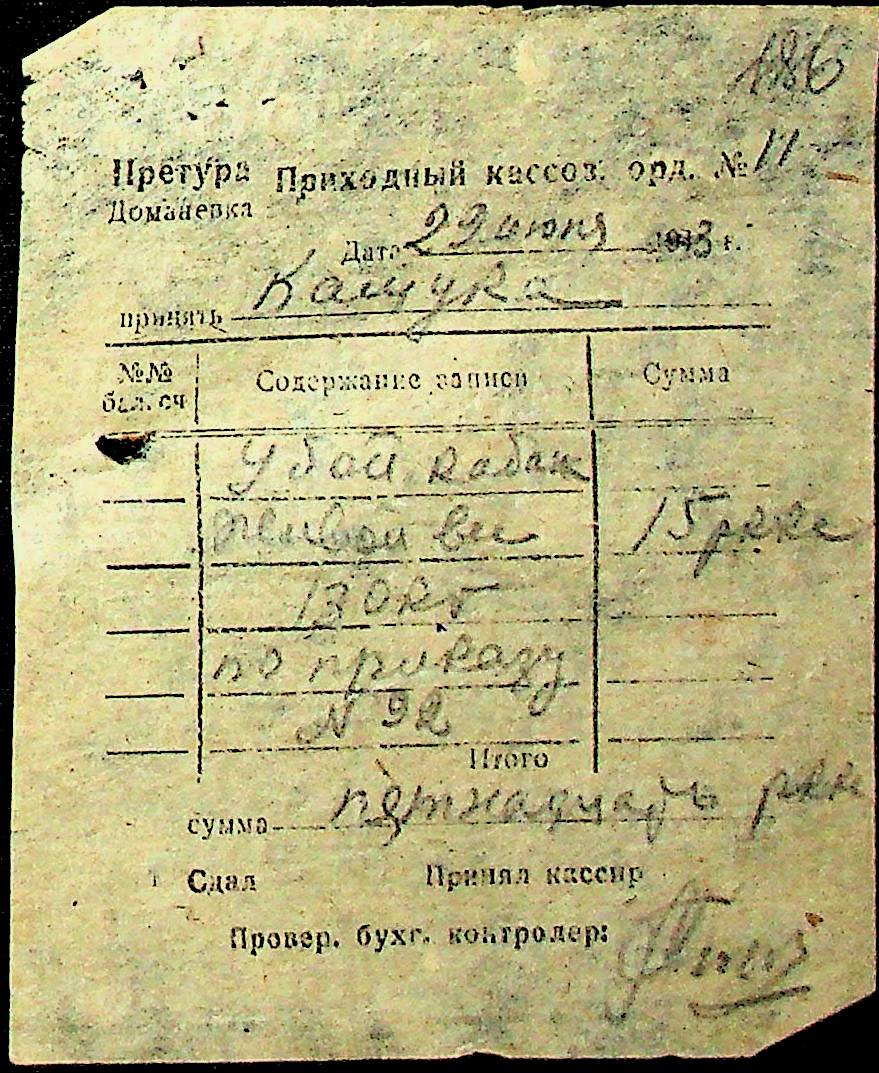 186
Претура Приходный кассов. орд. № 11
Доманевка
Дата 29 июня 1943 г.
принять Кащука
№№ бал. сч Содержание записи Сумма
Убой кабан
живой вес 15 ркке
130 кг
по приказу
N 92
Итого
сумма пятнадцать ркк
Сдал Принял кассир
Провер. бухг. контролер: